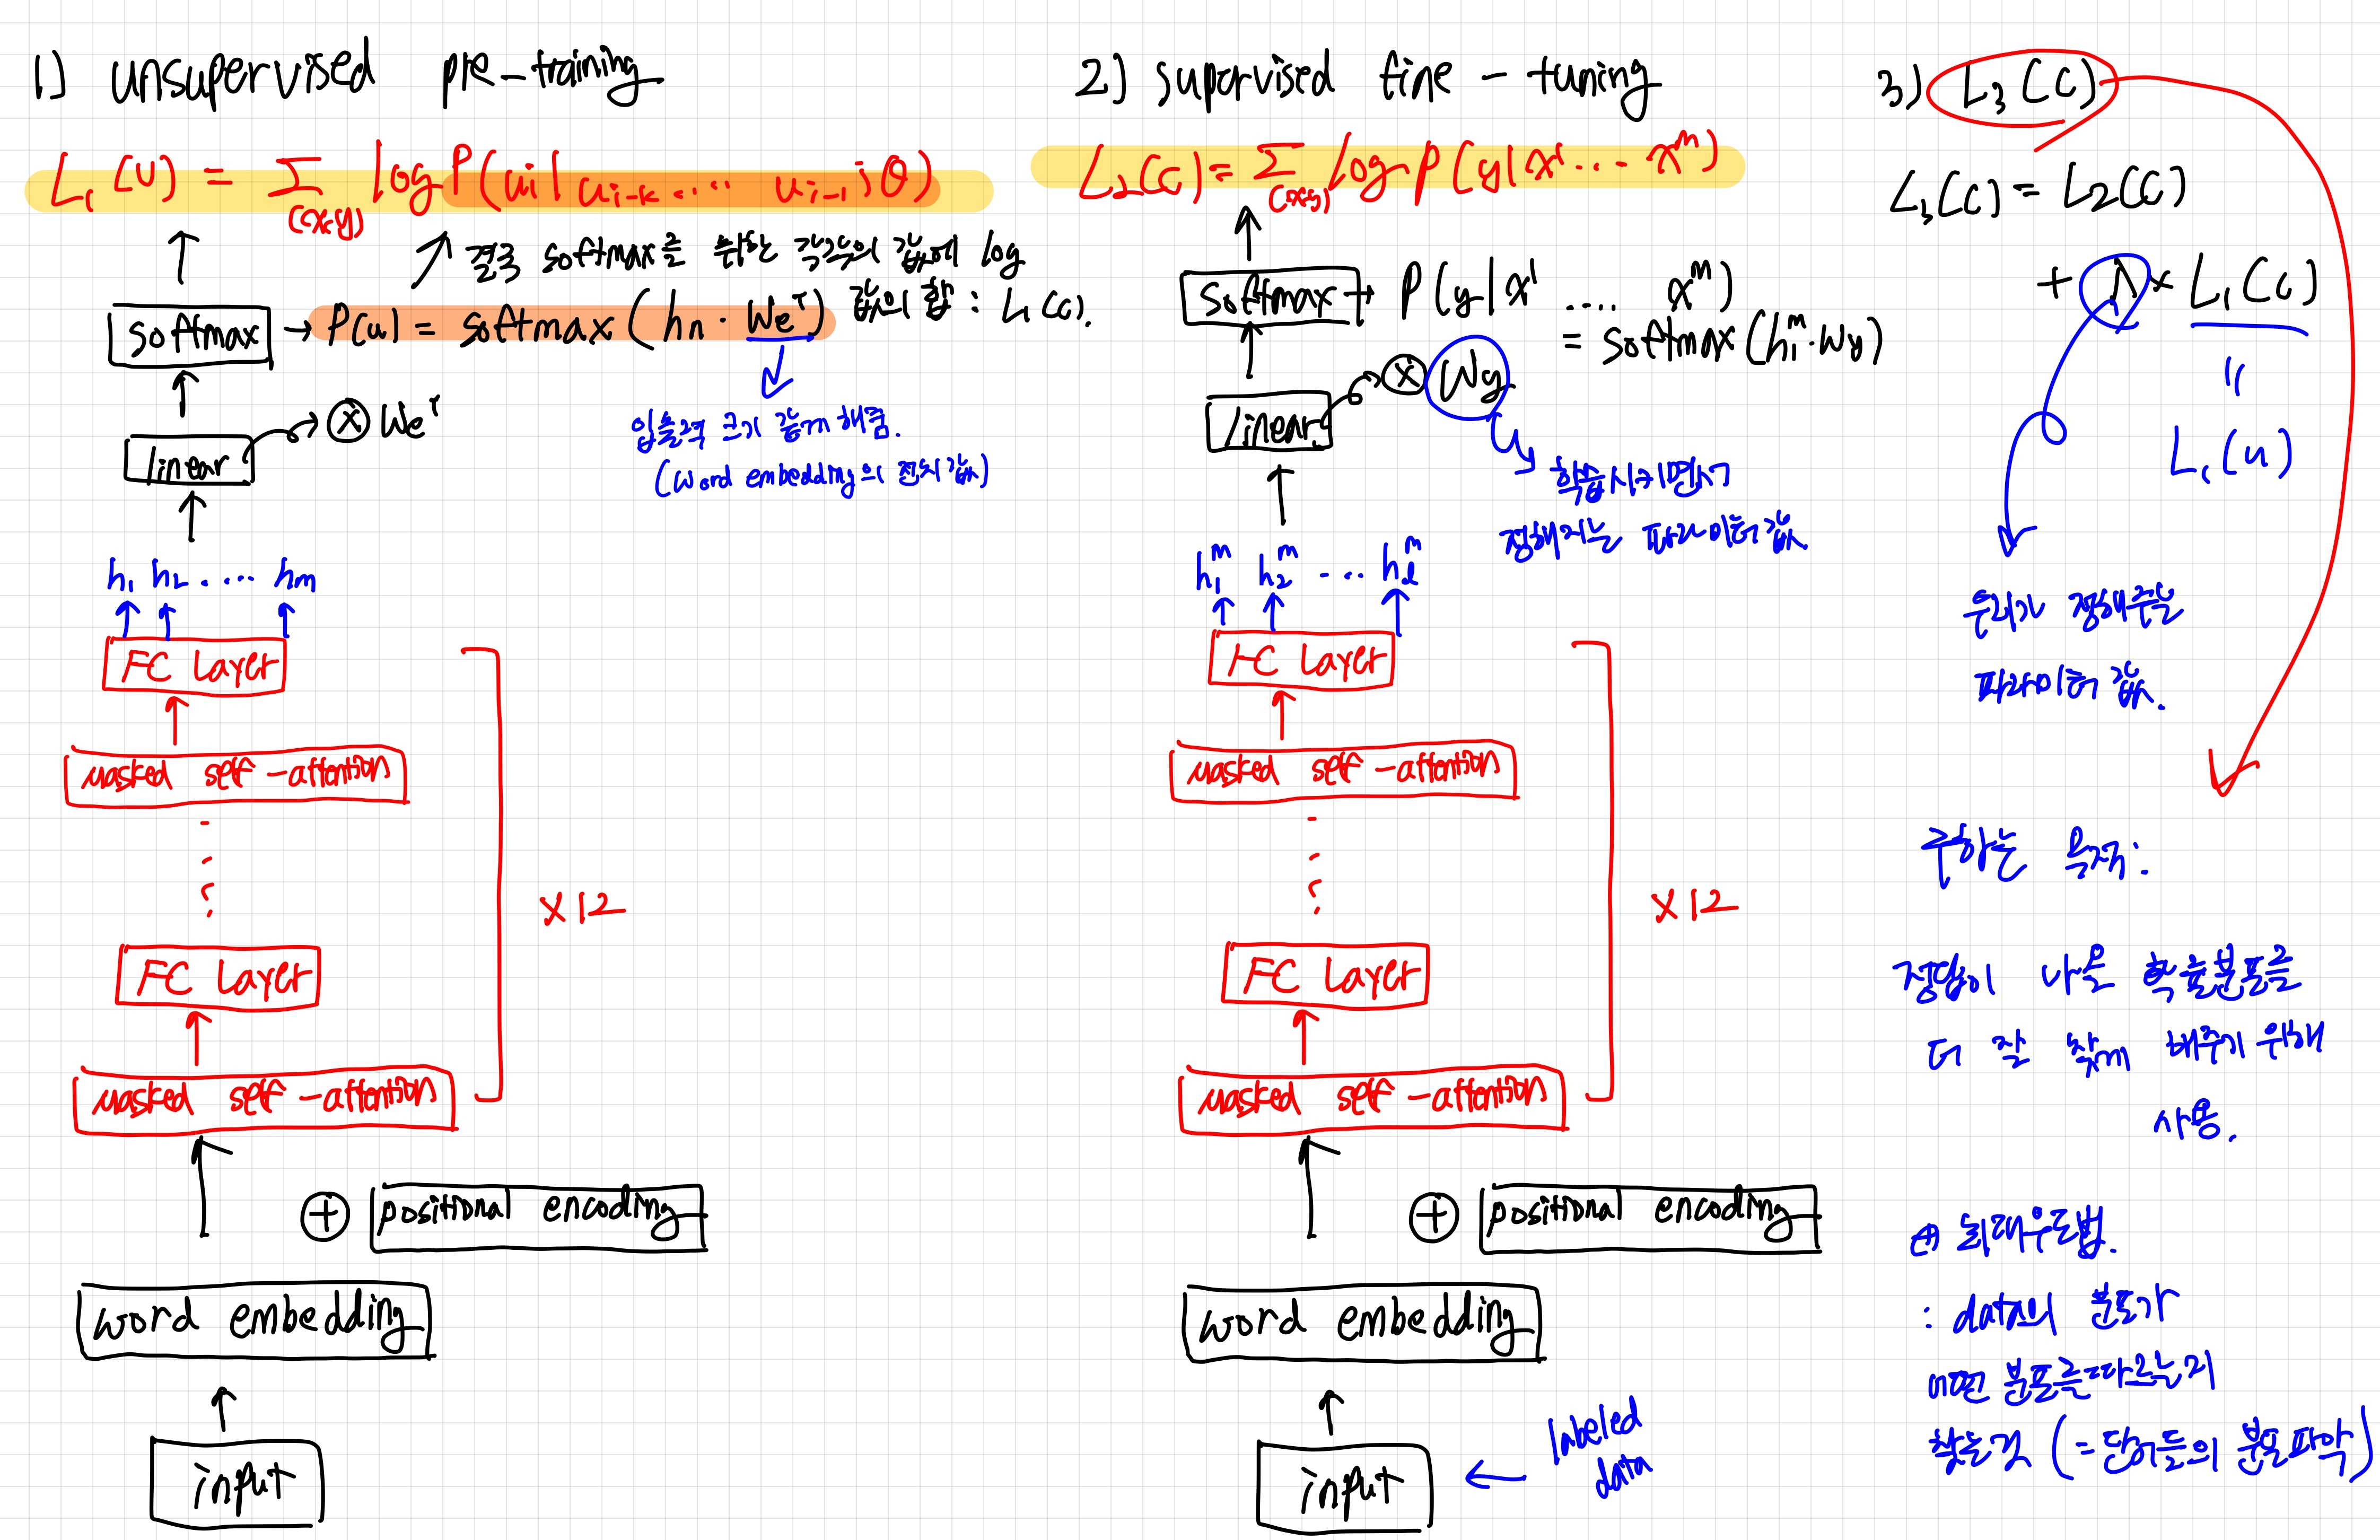 1) unsupervised pre-training
L₁(U) = Σ log P(ui | ui-k, ... ui-1 ; θ)
(x,y)
결국 softmax를 취하는 각각의 값에 log
값의 합 : L₁(C).
softmax → P(u) = softmax(hn · Weᵀ)
linear ⊗ Weᵀ
입출력 크기 같게 해줌.
(word embedding의 전치 값)
h₁ h₂ .... hm
FC Layer
masked self-attention
FC Layer
masked self-attention
×12
⊕ positional encoding
word embedding
input
2) supervised fine-tuning
L₂(C) = Σ log P(y | x¹ ... xᵐ)
(x,y)
softmax → P(y | x¹ .... xᵐ)
= softmax(h₁ᵐ · Wy)
linear ⊗ Wy
학습시키면서
정해지는 파라미터 값.
h₁ᵐ h₂ᵐ ... hₗᵐ
FC Layer
masked self-attention
FC Layer
masked self-attention
×12
⊕ positional encoding
word embedding
input
labeled
data
3) L₃(C)
L₃(C) = L₂(C)
+ λ × L₁(C)
=
L₁(u)
우리가 정해주는
파라미터 값.
구하는 목적:
정답이 나올 확률분포를
더 잘 찾게 해주기 위해
사용.
⊕ 최대우도법.
: data의 분포가
어떤 분포를 따르는지
찾는것 (= 단어들의 분포 파악)